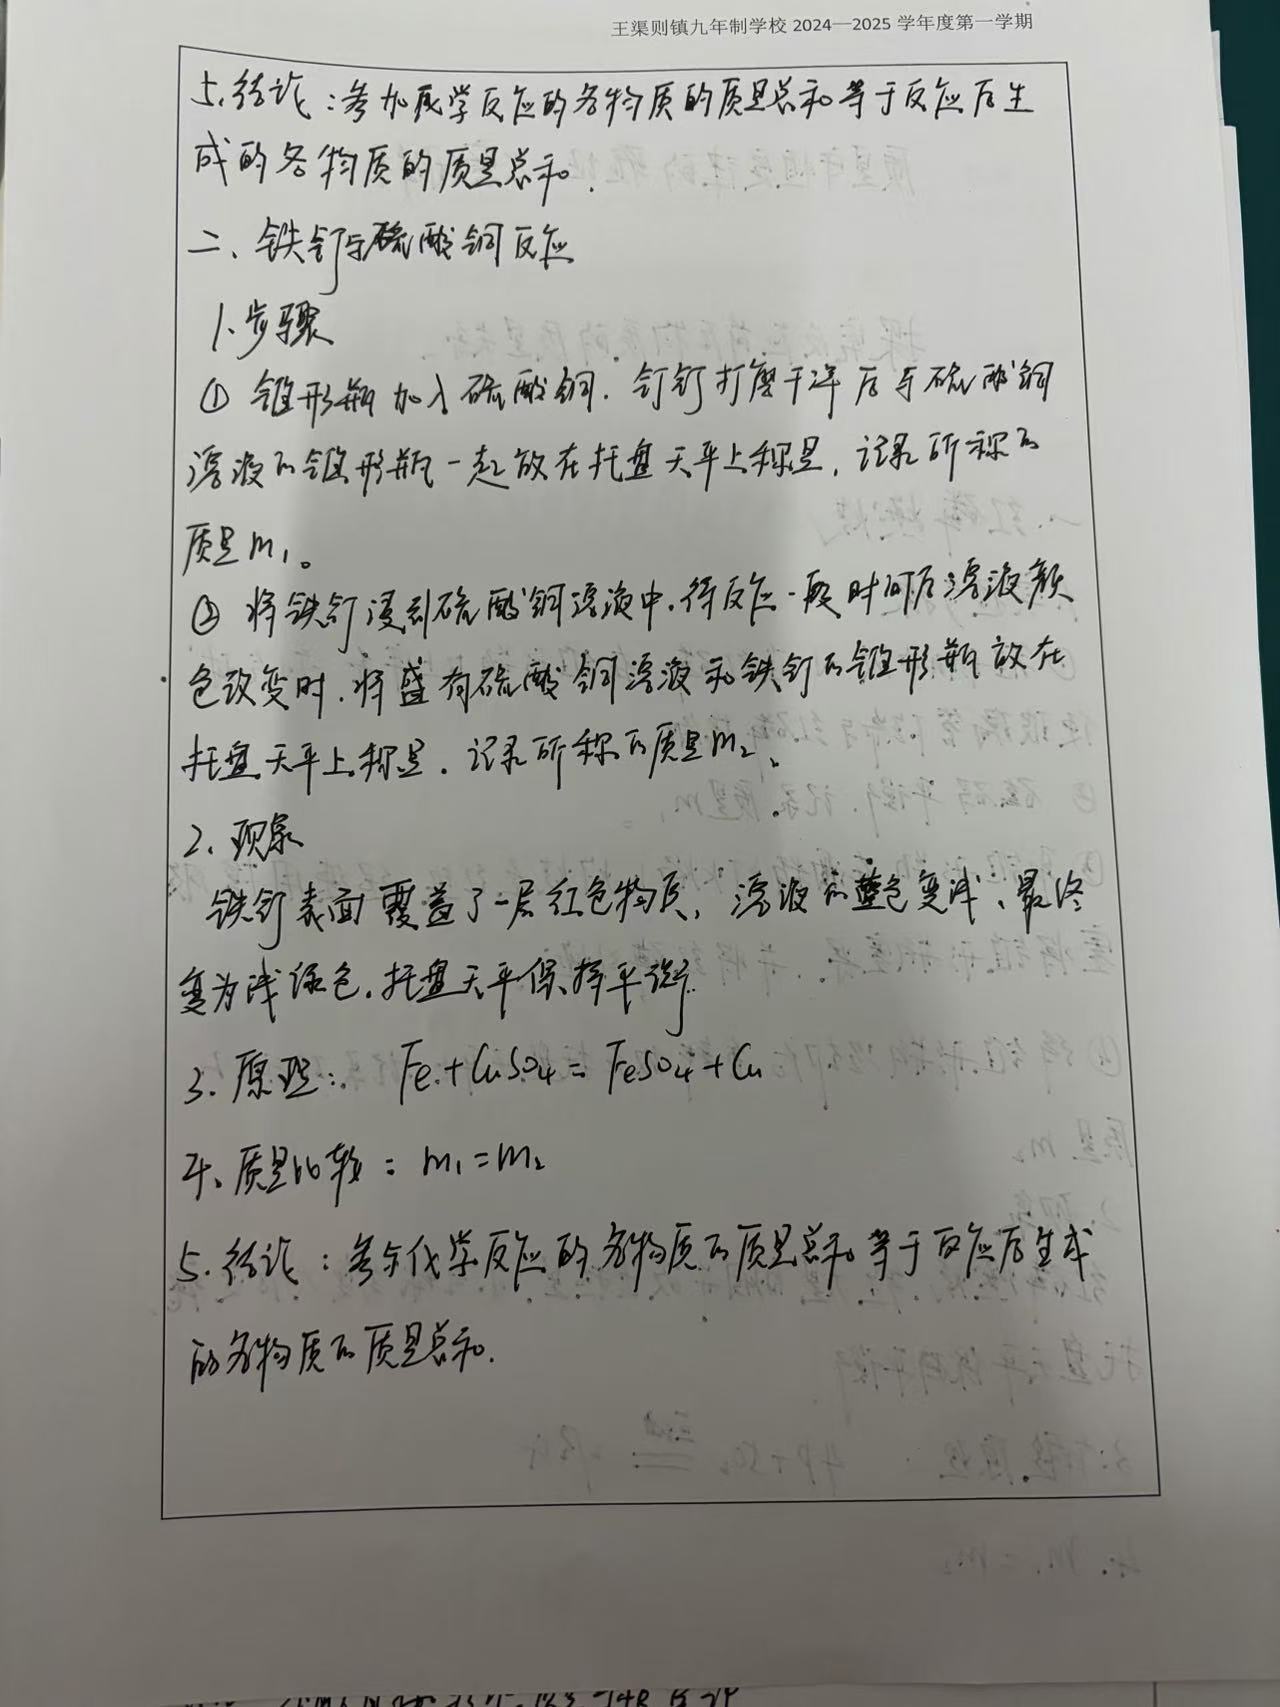 王渠则镇九年制学校 2024—2025 学年度第一学期
5.结论：参加化学反应的各物质的质量总和等于反应后生
成的各物质的质量总和.
二、铁钉与硫酸铜反应
1.步骤
① 锥形瓶加入硫酸铜.钉钉打磨干净后与硫酸铜
溶液的锥形瓶一起放在托盘天平上称量,记录所称的
质量m₁。
② 将铁钉浸到硫酸铜溶液中.待反应一段时间后溶液颜
色改变时.将盛有硫酸铜溶液和铁钉的锥形瓶放在
托盘天平上称量.记录所称的质量m₂.
2.现象
铁钉表面覆盖了一层红色物质,溶液的蓝色变浅、最终
变为浅绿色.托盘天平保持平衡.
3.原理: Fe+CuSO₄=FeSO₄+Cu
4.质量比较：m₁=m₂
5.结论：参与化学反应的各物质的质量总和等于反应后生成
的各物质的质量总和.